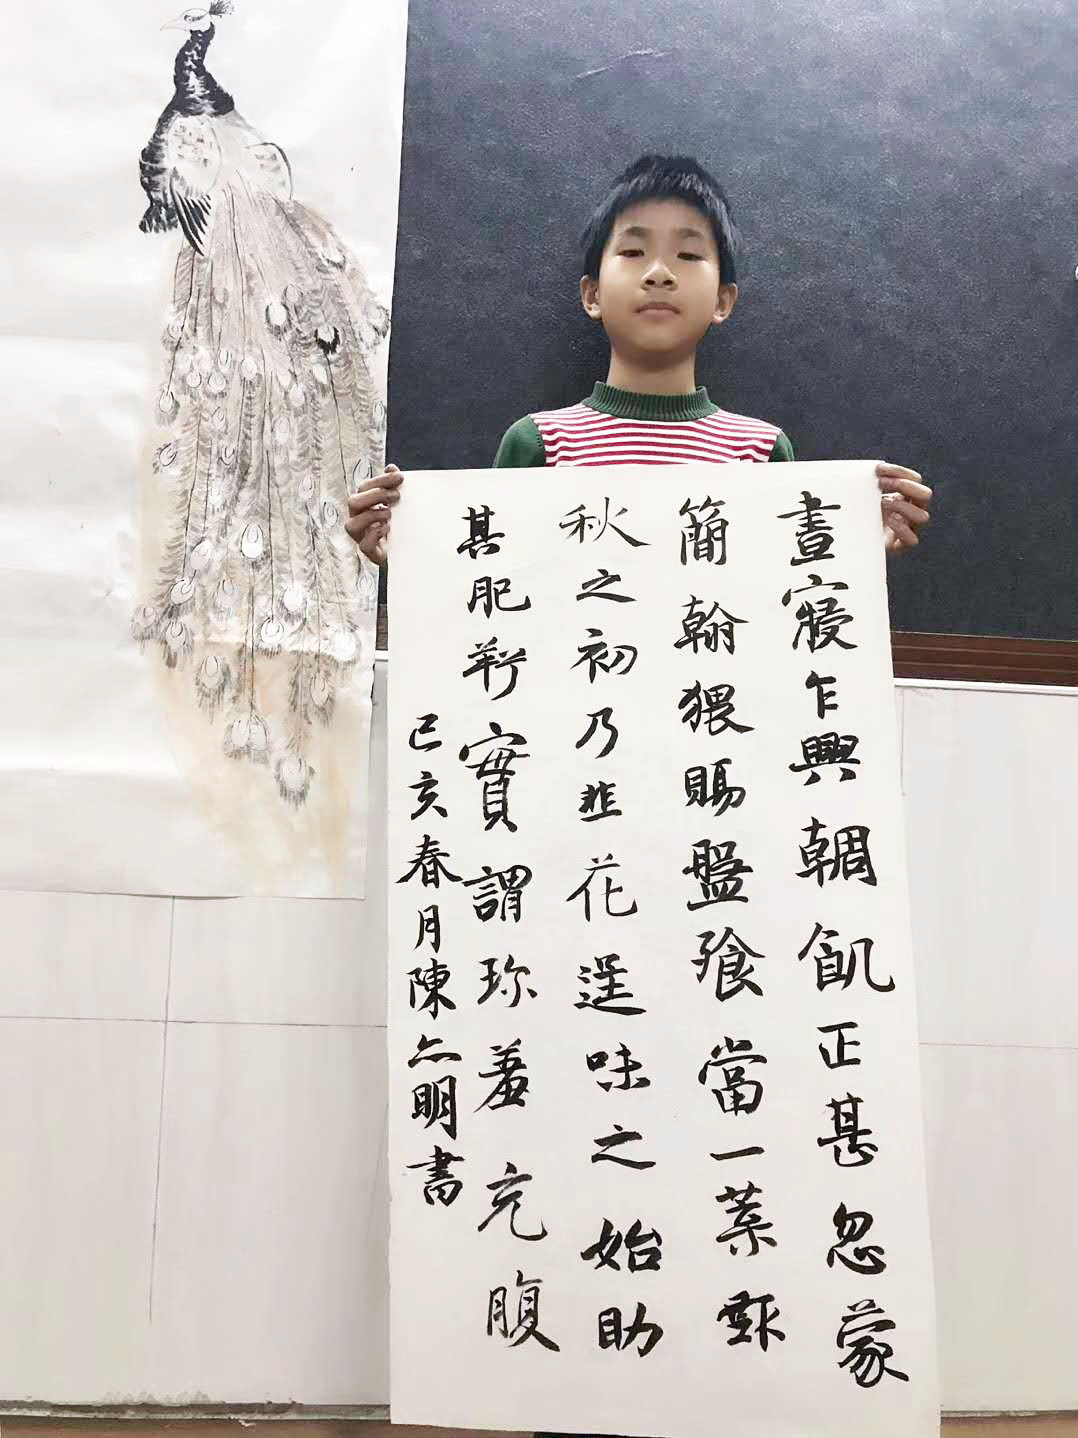 晝寢乍興輖飢正甚忽蒙
簡翰猥賜盤飱當一葉報
秋之初乃韭花逞味之始助
其肥羜實謂珎羞充腹
己亥春月陳明書